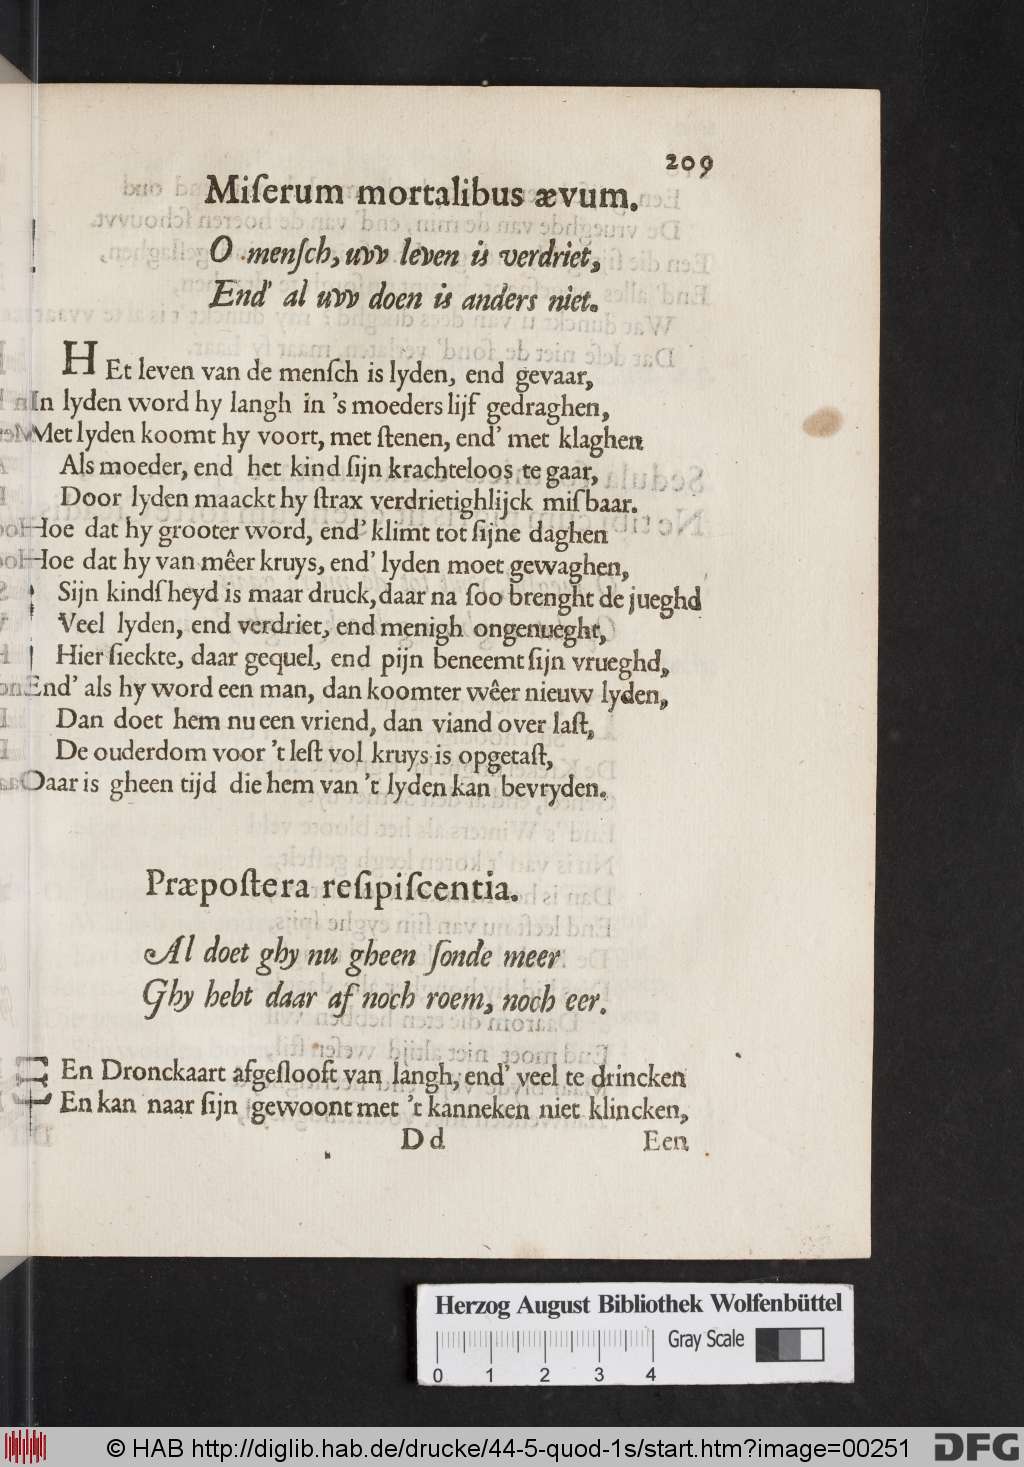 209
Miſerum mortalibus ævum.
O menſch, uvv leven is verdriet,
End' al uvv doen is anders niet.
HEt leven van de menſch is lyden, end gevaar,
In lyden word hy langh in 's moeders lijf gedraghen,
Met lyden koomt hy voort, met ſtenen, end' met klaghen
Als moeder, end het kind ſijn krachteloos te gaar,
Door lyden maackt hy ſtrax verdrietighlijck miſbaar.
Hoe dat hy grooter word, end' klimt tot ſijne daghen
Hoe dat hy van mêer kruys, end' lyden moet gewaghen,
Sijn kindſheyd is maar druck, daar na ſoo brenght de jueghd
Veel lyden, end verdriet, end menigh ongenueght,
Hier ſieckte, daar gequel, end pijn beneemt ſijn vrueghd,
End' als hy word een man, dan koomter wêer nieuw lyden,
Dan doet hem nu een vriend, dan viand over laſt,
De ouderdom voor 't leſt vol kruys is opgetaſt,
Daar is gheen tijd die hem van 't lyden kan bevryden.
Præpoſtera reſipiſcentia.
Al doet ghy nu gheen ſonde meer
Ghy hebt daar af noch roem, noch eer.
En Dronckaart afgeſlooft van langh, end' veel te drincken
En kan naar ſijn gewoont met 't kanneken niet klincken,
Dd
Een
Herzog August Bibliothek Wolfenbüttel
Gray Scale
0 1 2 3 4
© HAB http://diglib.hab.de/drucke/44-5-quod-1s/start.htm?image=00251
DFG